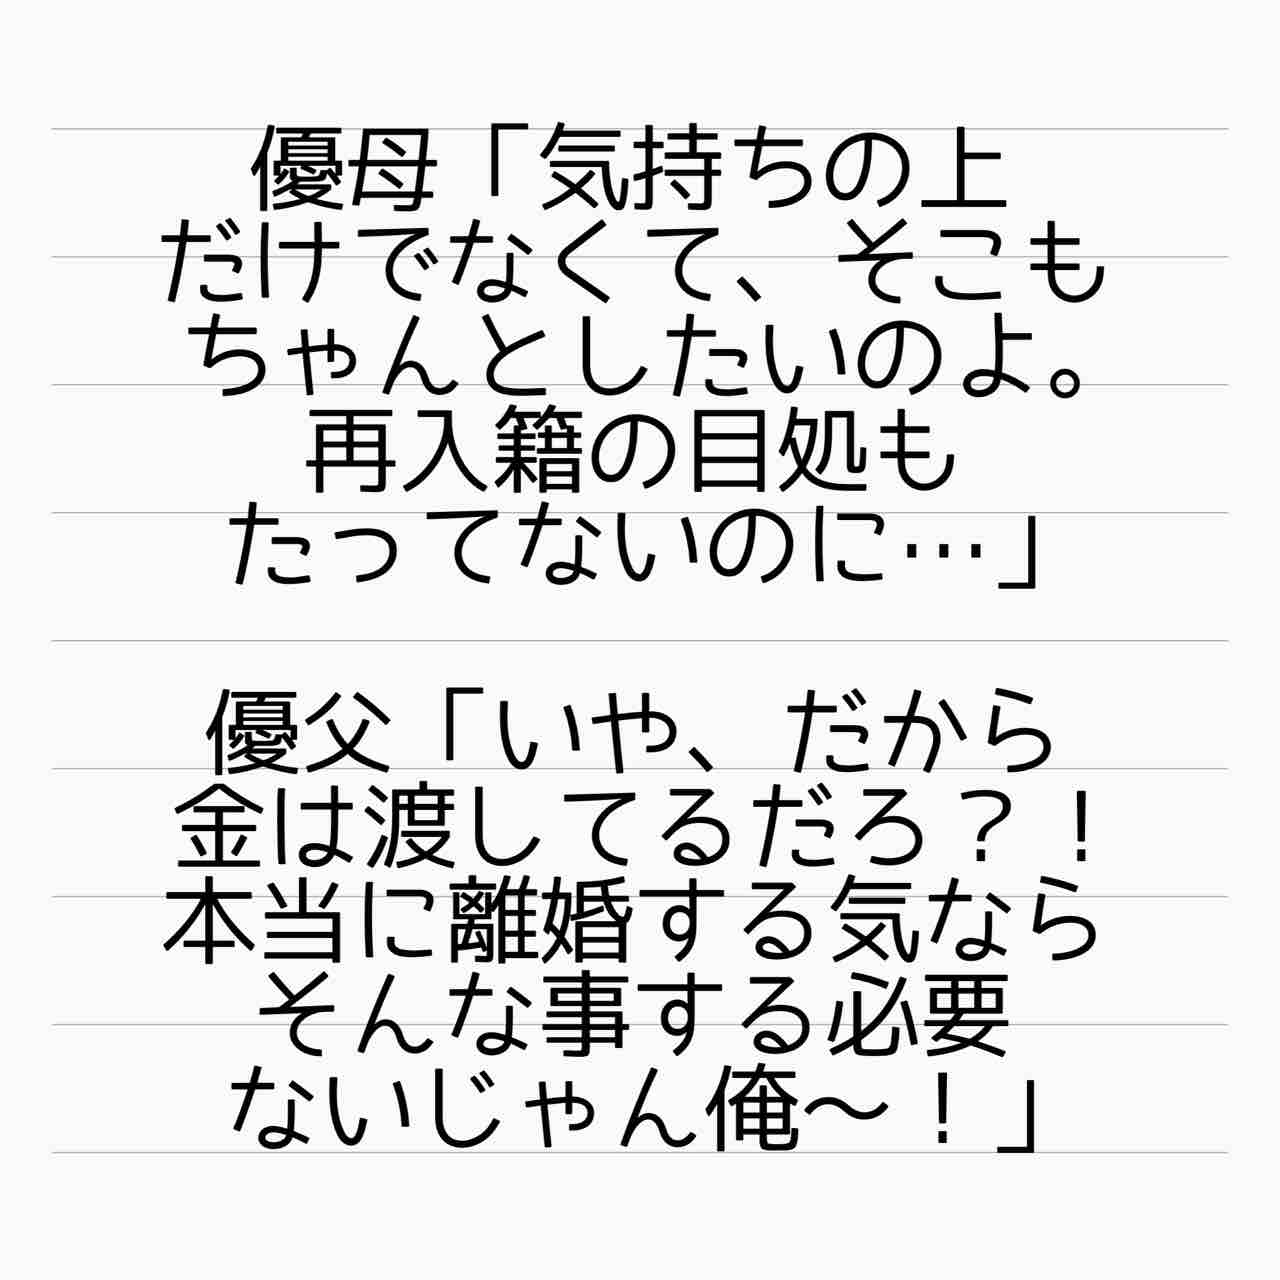 優母「気持ちの上
だけでなくて、そこも
ちゃんとしたいのよ。
再入籍の目処も
たってないのに…」
優父「いや、だから
金は渡してるだろ？！
本当に離婚する気なら
そんな事する必要
ないじゃん俺〜！」